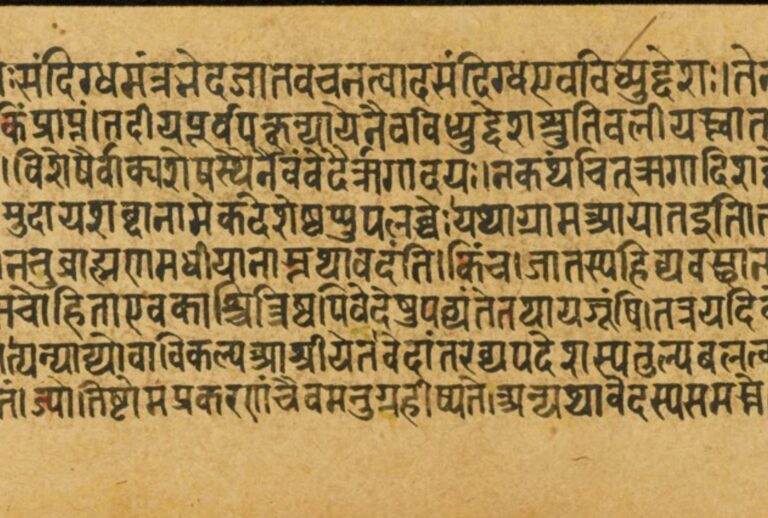 ःसंदिग्धमंत्रमेदजातवचनत्वादसंदिग्धएवविध्युद्देशः।तेन
किंप्राप्तं।तदीयपूर्वपक्षन्यायेनैवविध्युद्देशस्तुतिबलीयस्त्वात
।विशेषैर्वाक्यशेषस्थैर्नैवंवेदैर्ऋगादयः।नकथंचितऋगादिश
मुदायशब्दानामेकदेशेष्वप्युपलब्धेःयथाग्रामआयातइति।त
।ननुब्राह्मणमधीयानान्नथावदंति।किंच।जातस्पहिव्यवस्थान
मचोहिताएवकाश्चित्रिष्वपिवेदेषुपठ्यंतेतथायजूंषि।तत्रयदिवे
त्यन्याय्योवाविकल्पआश्रीयेतवेदांतरव्यपदेशस्पतुल्पबलत्व
तं।ज्योतिष्टोमप्रकरणंचैवमनुग्रहीष्यते।अन्यथावेदस्पसमस्ते